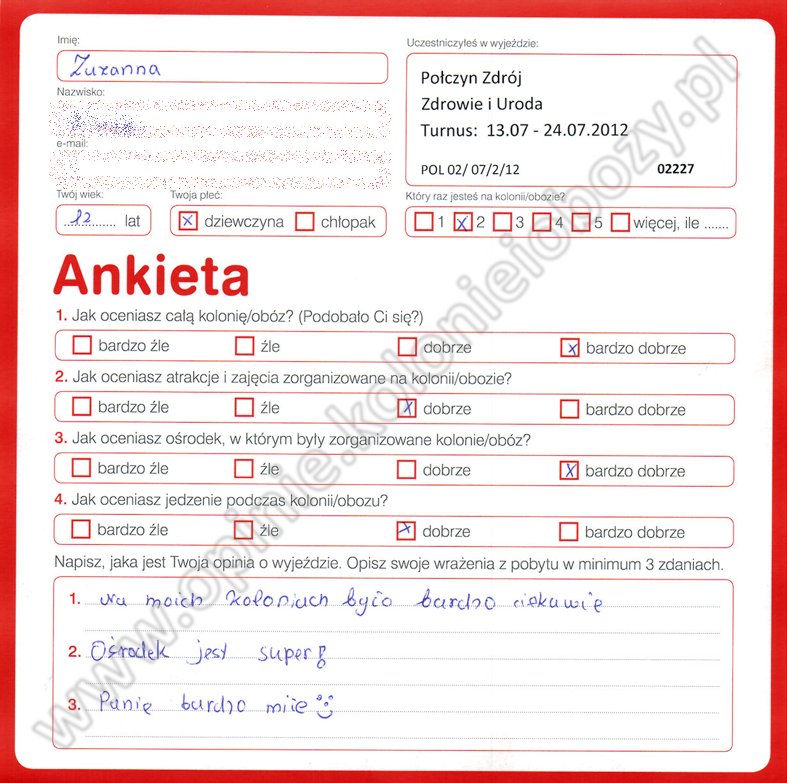 Imię:
Zuzanna
Nazwisko:
e-mail:
Twój wiek:
12 lat
Twoja płeć:
x dziewczyna chłopak
Uczestniczyłeś w wyjeździe:
Połczyn Zdrój
Zdrowie i Uroda
Turnus: 13.07 - 24.07.2012
POL 02/ 07/2/12 02227
Który raz jesteś na kolonii/obozie?
1 x 2 3 4 5 więcej, ile .......
Ankieta
1. Jak oceniasz całą kolonię/obóz? (Podobało Ci się?)
bardzo źle źle dobrze x bardzo dobrze
2. Jak oceniasz atrakcje i zajęcia zorganizowane na kolonii/obozie?
bardzo źle źle x dobrze bardzo dobrze
3. Jak oceniasz ośrodek, w którym były zorganizowane kolonie/obóz?
bardzo źle źle dobrze x bardzo dobrze
4. Jak oceniasz jedzenie podczas kolonii/obozu?
bardzo źle źle x dobrze bardzo dobrze
Napisz, jaka jest Twoja opinia o wyjeździe. Opisz swoje wrażenia z pobytu w minimum 3 zdaniach.
1. Na moich koloniach było bardzo ciekawie
2. Ośrodek jest super!
3. Panie bardzo miłe
www.opinie.kolonieiobozy.pl